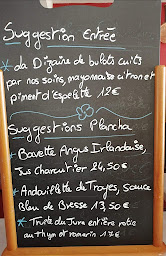 Suggestion Entrée
* La Dizaine de bulots cuits
par nos soins, mayonnaise citron et
piment d'Espelette 12€
Suggestions Plancha
* Bavette Angus Irlandaise,
Jus Charcutier 24,50€
* Andouillette de Troyes, sauce
Bleu de Bresse 13,50€
* Truite du Jura entière rotie
au thym et romarin 17€